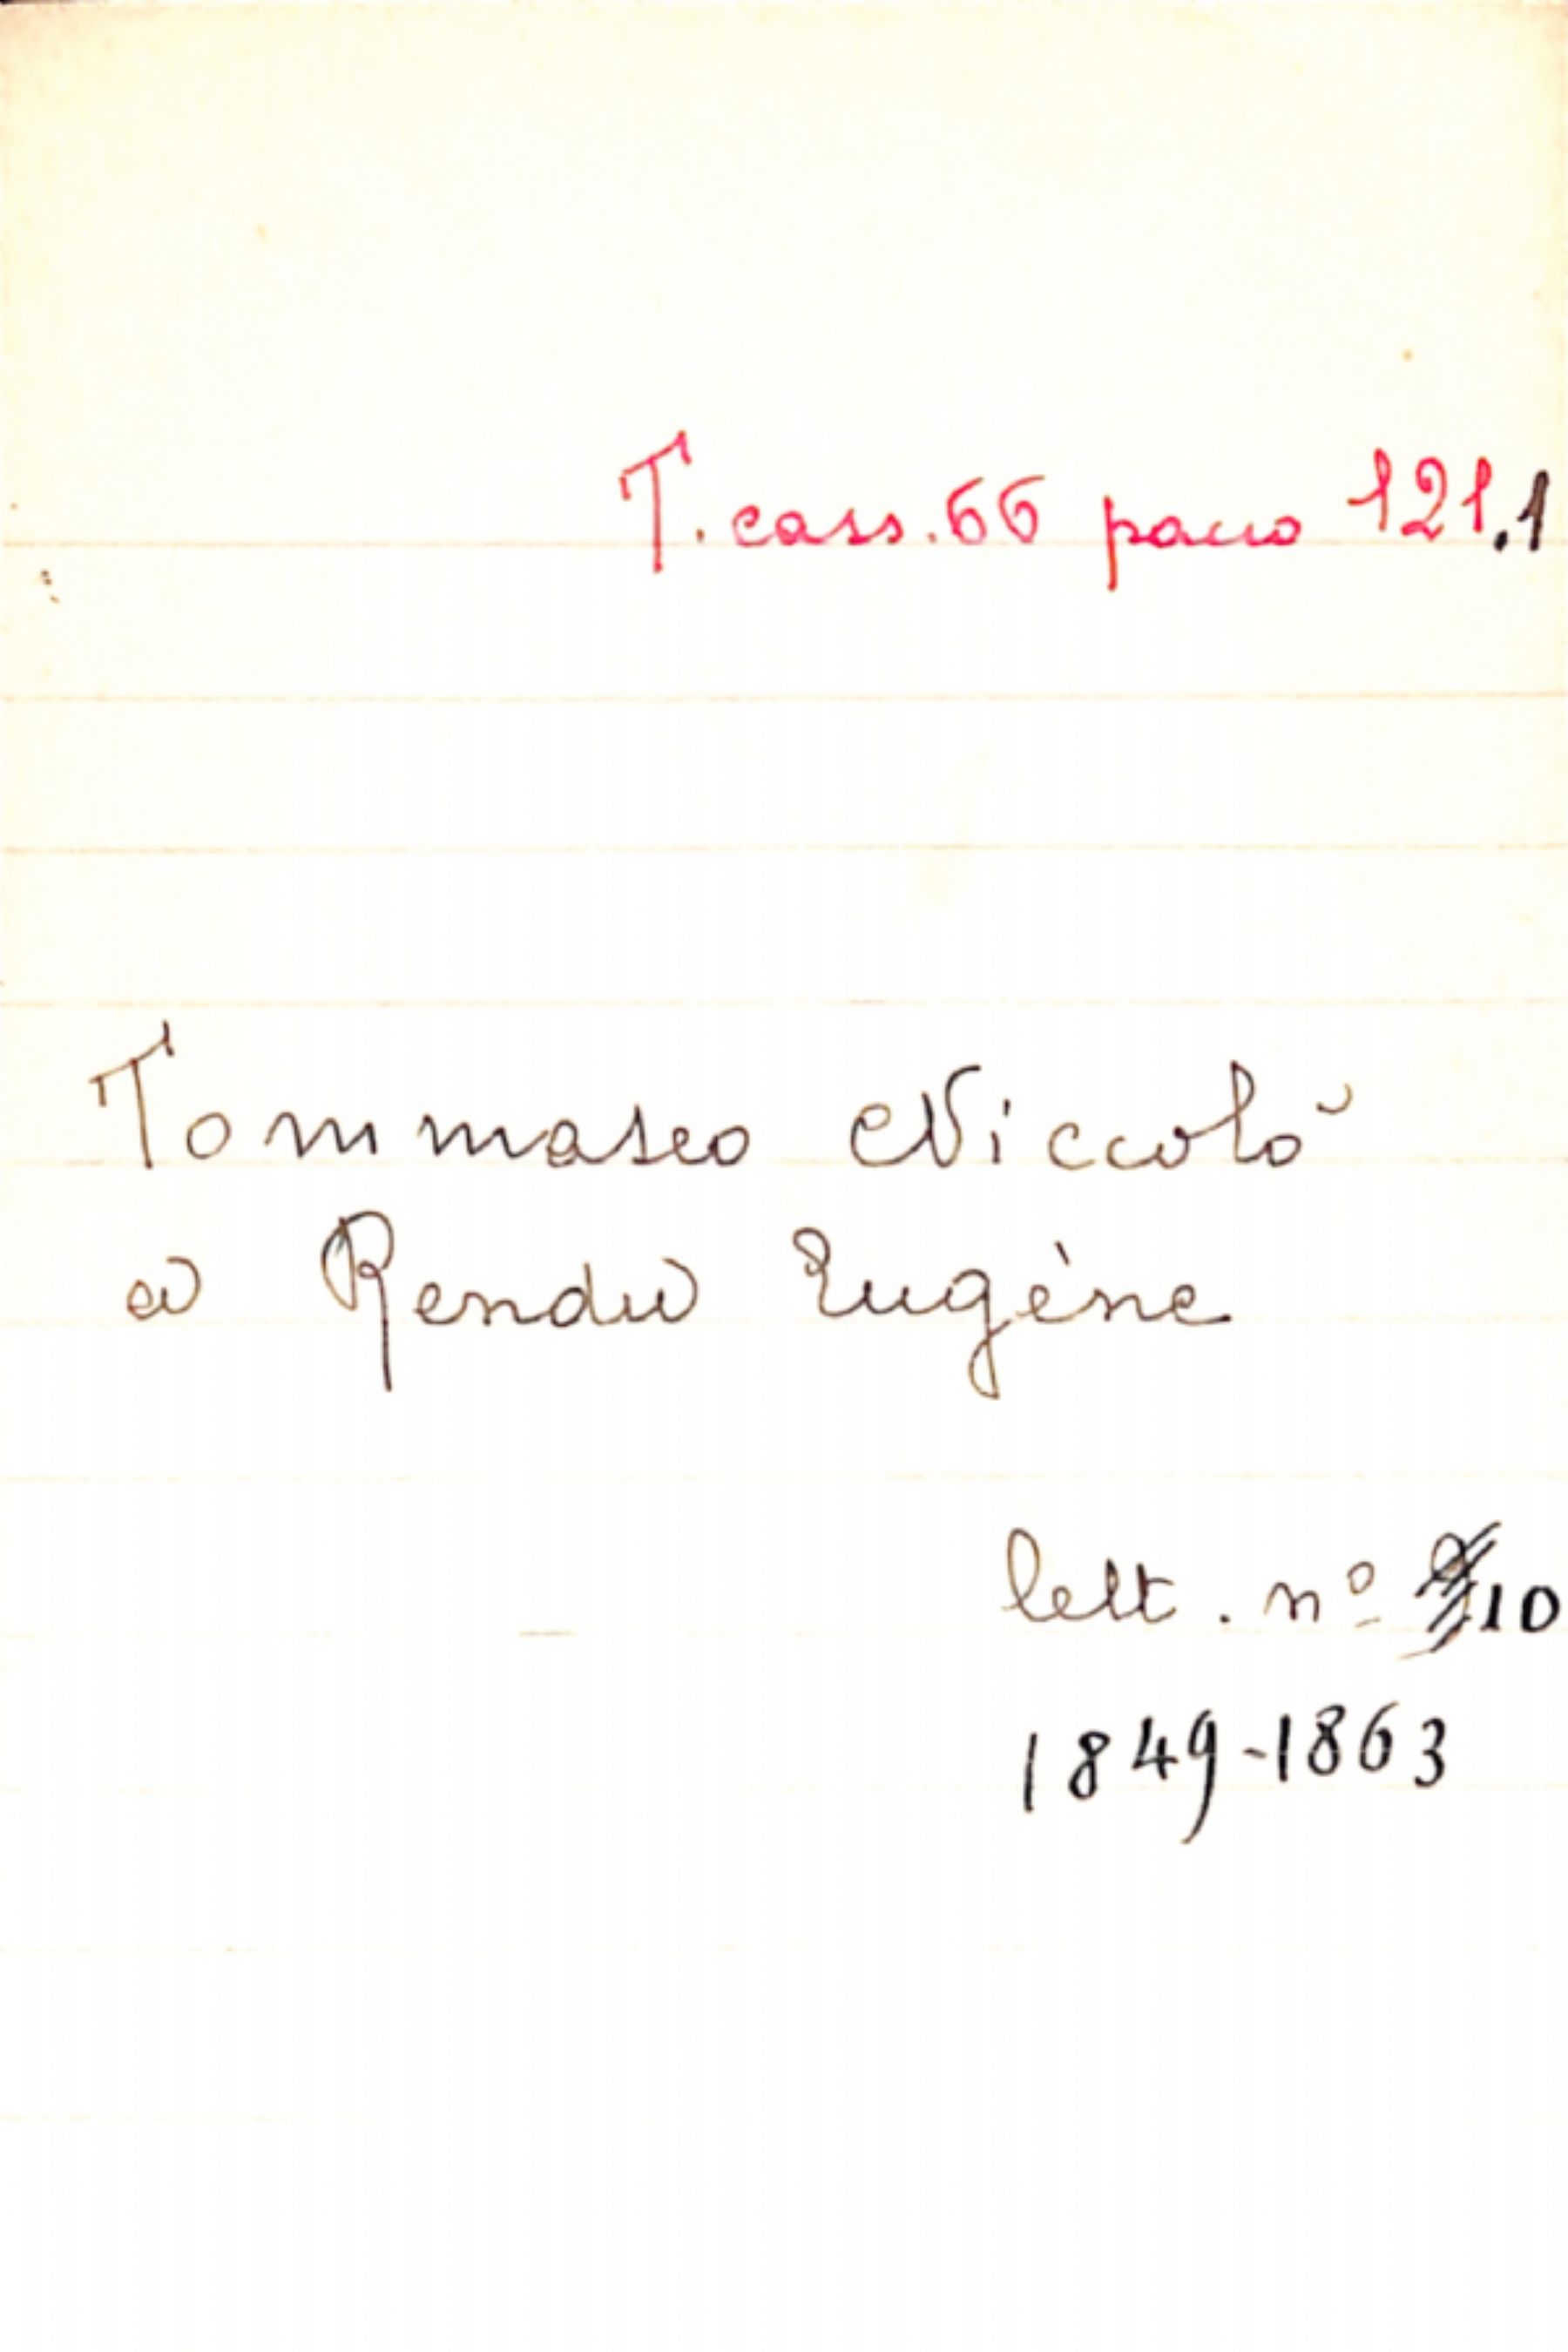 T. cass. 66 pacco 121.1
Tommaseo Niccolò
a Rendu Eugène
lett. nº 10
1849-1863